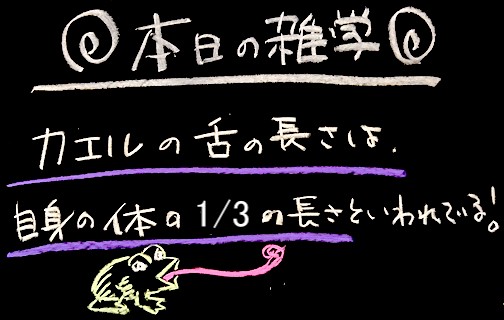 本日の雑学
カエルの舌の長さは、
自身の体の1/3の長さといわれている!